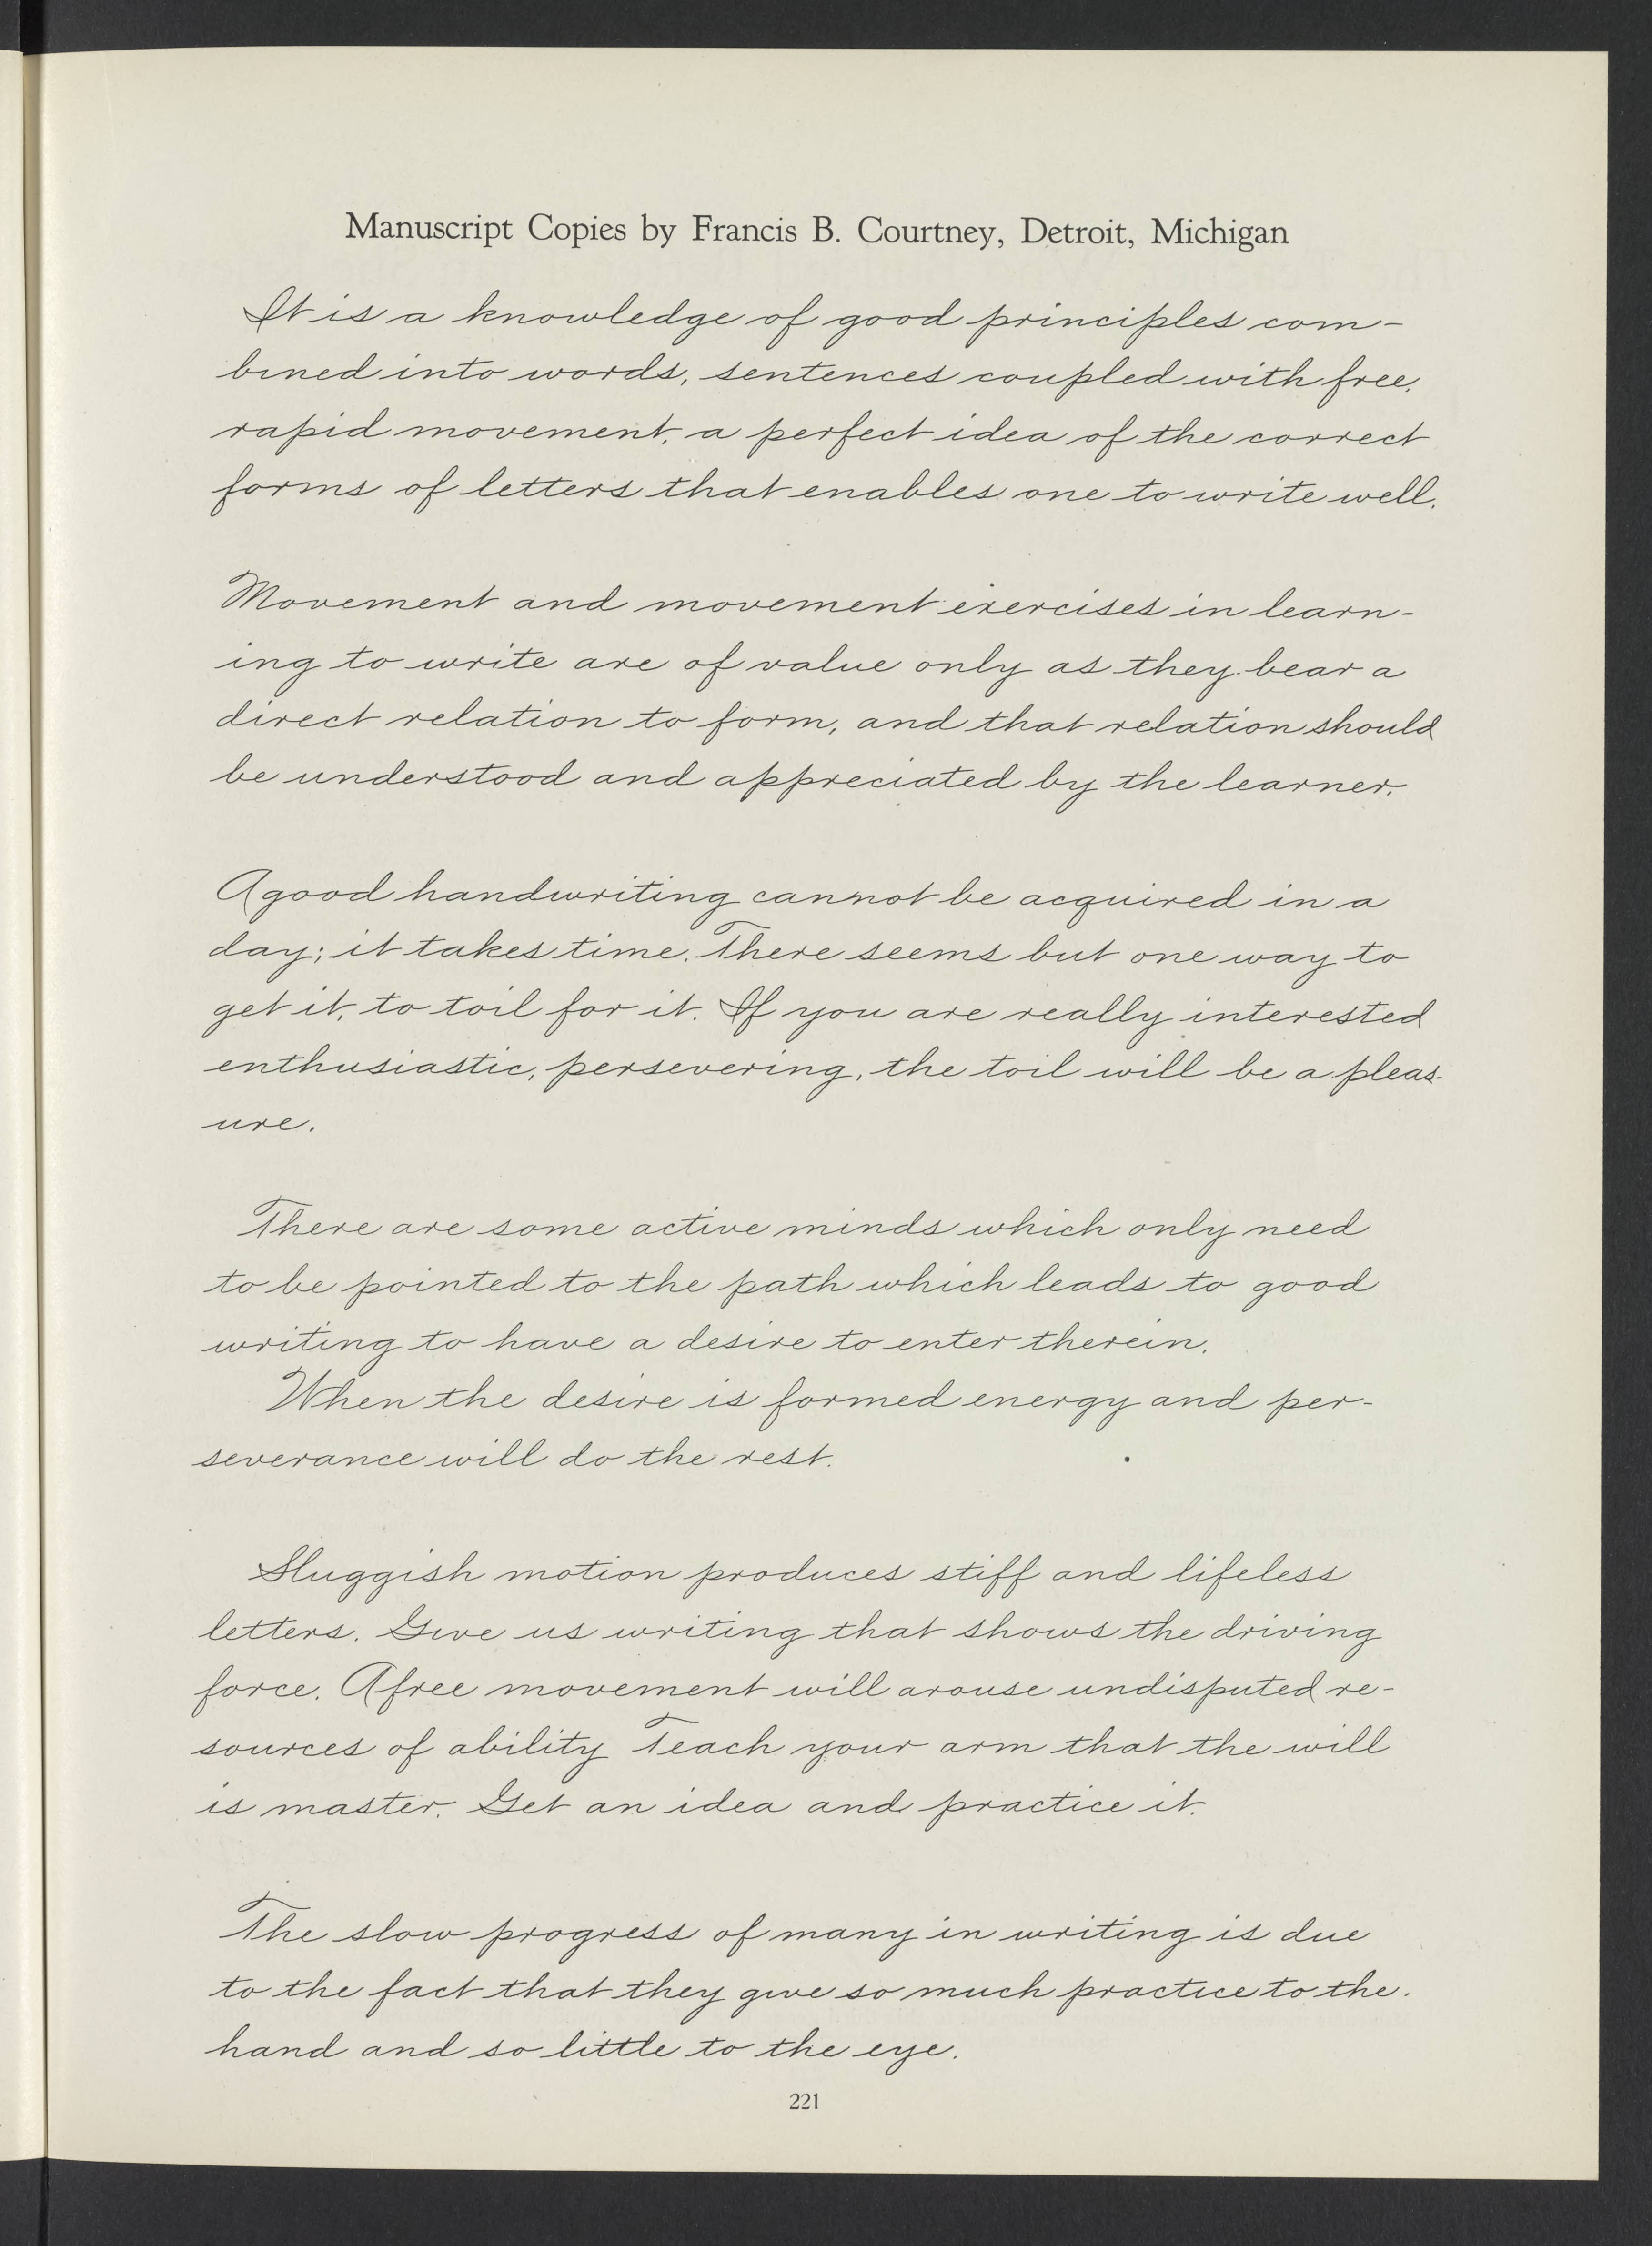 Manuscript Copies by Francis B. Courtney, Detroit, Michigan
It is a knowledge of good principles com-
bined into words, sentences coupled with free,
rapid movement, a perfect idea of the correct
forms of letters that enables one to write well.
Movement and movement exercises in learn-
ing to write are of value only as they bear a
direct relation to form, and that relation should
be understood and appreciated by the learner.
A good handwriting cannot be acquired in a
day; it takes time. There seems but one way to
get it, to toil for it. If you are really interested
enthusiastic, persevering, the toil will be a pleas-
ure.
There are some active minds which only need
to be pointed to the path which leads to good
writing to have a desire to enter therein.
When the desire is formed energy and per-
severance will do the rest.
Sluggish motion produces stiff and lifeless
letters. Give us writing that shows the driving
force. A free movement will arouse undisputed re-
sources of ability Teach your arm that the will
is master. Get an idea and practice it.
The slow progress of many in writing is due
to the fact that they give so much practice to the.
hand and so little to the eye.
221